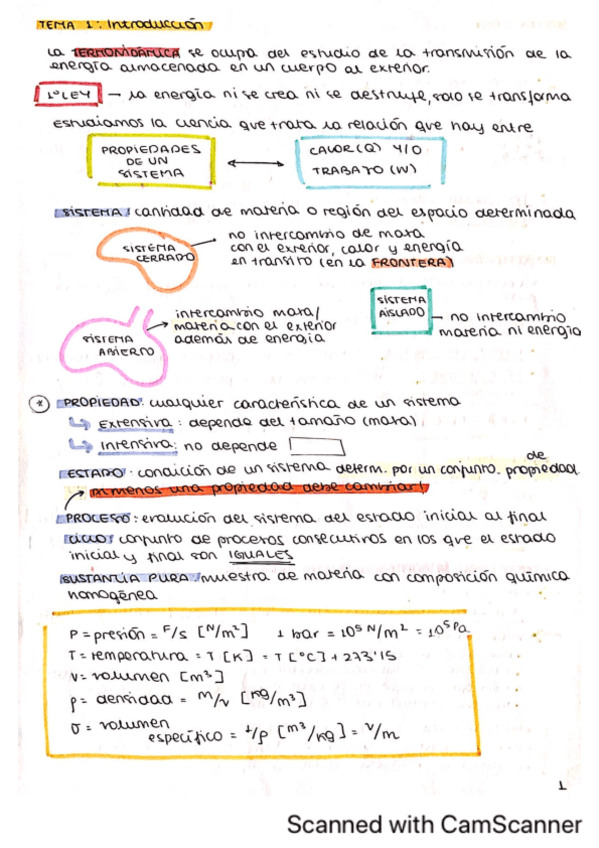 TEMA 1: Introducción
La TERMODINÁMICA se ocupa del estudio de la transmisión de la
energía almacenada en un cuerpo al exterior.
1ª LEY — La energía ni se crea ni se destruye, solo se transforma
estudiamos la ciencia que trata la relación que hay entre
PROPIEDADES
DE UN
SISTEMA
CALOR (Q) Y/O
TRABAJO (W)
SISTEMA: cantidad de materia o región del espacio determinada
SISTEMA
CERRADO
no intercambio de masa
con el exterior, calor y energía
en transito (en la FRONTERA)
SISTEMA
ABIERTO
intercambio masa/
materia con el exterior
además de energía
SISTEMA
AISLADO
no intercambio
materia ni energía
* PROPIEDAD: cualquier característica de un sistema
Extensiva: depende del tamaño (masa)
Intensiva: no depende
ESTADO: condición de un sistema determ. por un conjunto de propiedad
Al menos una propiedad debe cambiar!
PROCESO: evolución del sistema del estado inicial al final
CICLO: conjunto de procesos consecutivos en los que el estado
inicial y final son IGUALES
SUSTANCIA PURA: muestra de materia con composición química
homogénea
P = presión = F/S [N/m²] 1 bar = 10⁵ N/m² = 10⁵ Pa
T = temperatura = T [K] = T [°C] + 273'15
V = volumen [m³]
ρ = densidad = m/v [kg/m³]
υ = volumen
específico = 1/ρ [m³/kg] = V/m
1
Scanned with CamScanner